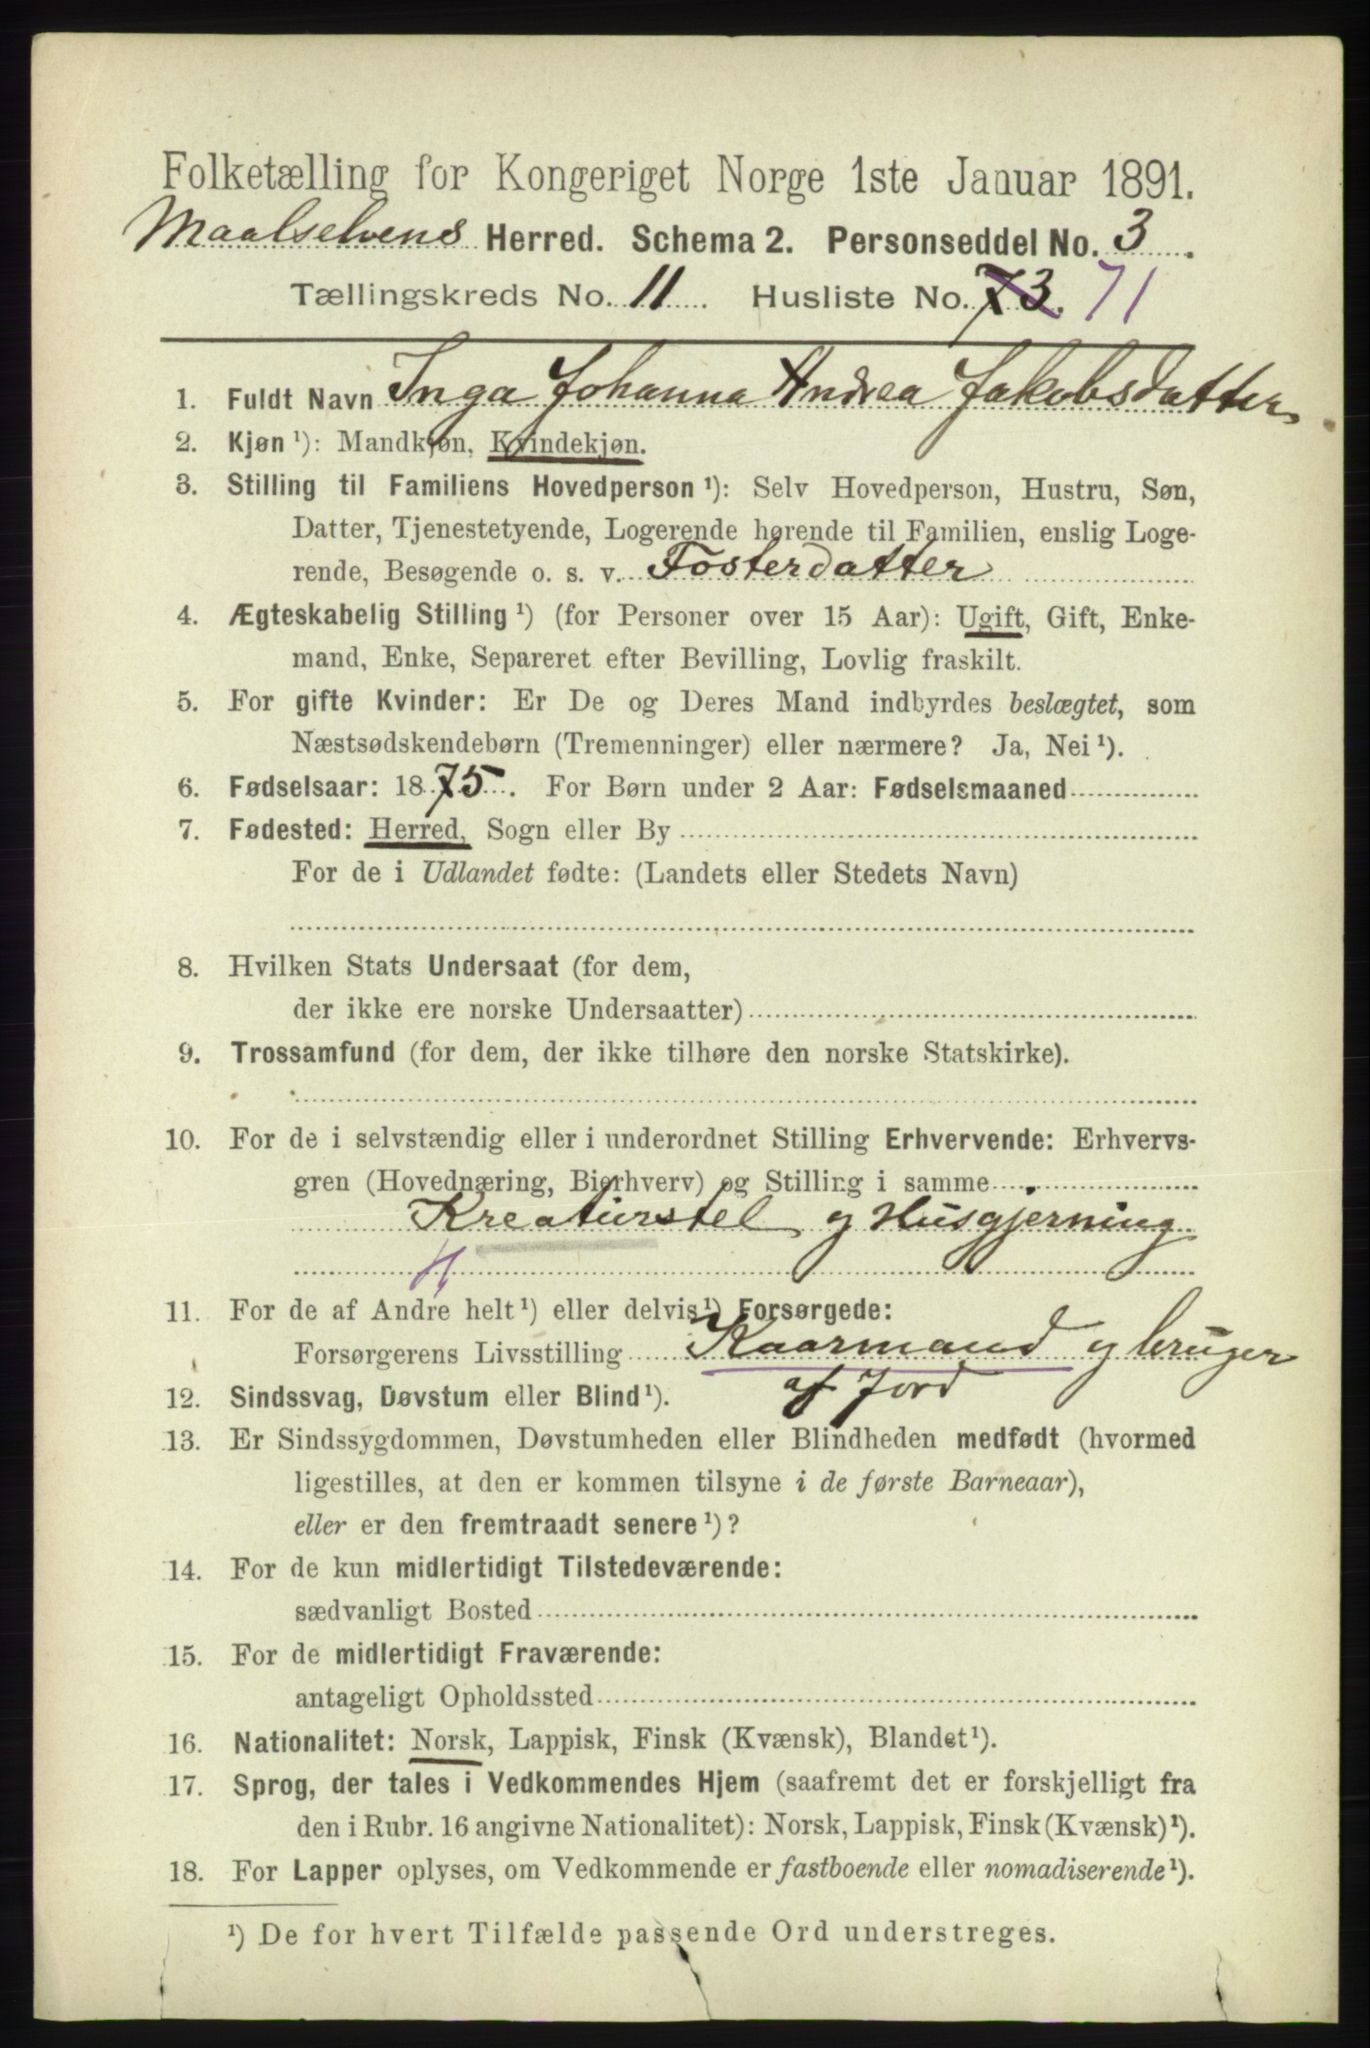 Folketælling for Kongeriget Norge 1ste Januar 1891.
Maalselvens Herred. Schema 2. Personseddel No. 3
Tællingskreds No. 11 Husliste No. 73. 71
1. Fuldt Navn Inga Johanna Andrea Jakobsdatter
2. Kjøn ¹): Mandkjøn, Kvindekjøn.
3. Stilling til Familiens Hovedperson ¹): Selv Hovedperson, Hustru, Søn,
Datter, Tjenestetyende, Logerende hørende til Familien, enslig Loge-
rende, Besøgende o. s. v. Fosterdatter
4. Ægteskabelig Stilling ¹) (for Personer over 15 Aar): Ugift, Gift, Enke-
mand, Enke, Separeret efter Bevilling, Lovlig fraskilt.
5. For gifte Kvinder: Er De og Deres Mand indbyrdes beslægtet, som
Næstsødskendebørn (Tremenninger) eller nærmere? Ja, Nei ¹).
6. Fødselsaar: 1875. For Børn under 2 Aar: Fødselsmaaned
7. Fødested: Herred, Sogn eller By
For de i Udlandet fødte: (Landets eller Stedets Navn)
8. Hvilken Stats Undersaat (for dem,
der ikke ere norske Undersaatter)
9. Trossamfund (for dem, der ikke tilhøre den norske Statskirke).
10. For de i selvstændig eller i underordnet Stilling Erhvervende: Erhvervs-
gren (Hovednæring, Bierhverv) og Stilling i samme
Kreaturstel og Husgjerning
11. For de af Andre helt ¹) eller delvis ¹) Forsørgede:
Forsørgerens Livsstilling Kaarmand og bruger
af Jord
12. Sindssvag, Døvstum eller Blind ¹).
13. Er Sindssygdommen, Døvstumheden eller Blindheden medfødt (hvormed
ligestilles, at den er kommen tilsyne i de første Barneaar),
eller er den fremtraadt senere ¹)?
14. For de kun midlertidigt Tilstedeværende:
sædvanligt Bosted
15. For de midlertidigt Fraværende:
antageligt Opholdssted
16. Nationalitet: Norsk, Lappisk, Finsk (Kvænsk), Blandet ¹).
17. Sprog, der tales i Vedkommendes Hjem (saafremt det er forskjelligt fra
den i Rubr. 16 angivne Nationalitet): Norsk, Lappisk, Finsk (Kvænsk) ¹).
18. For Lapper oplyses, om Vedkommende er fastboende eller nomadiserende ¹).
¹) De for hvert Tilfælde passende Ord understreges.